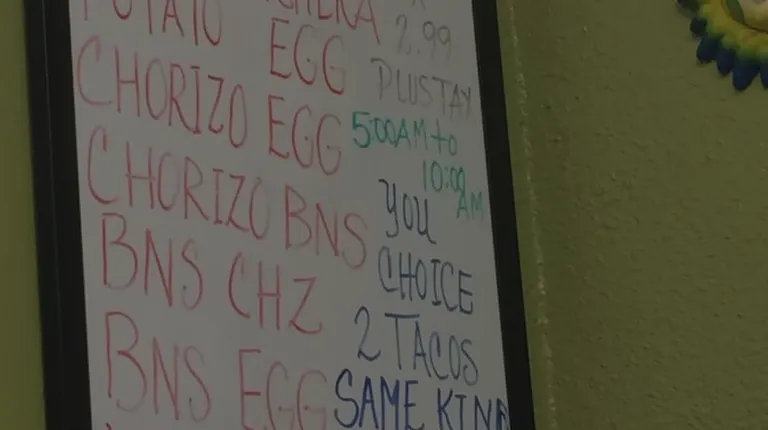 POTATO EGG
CHORIZO EGG
CHORIZO BNS
BNS CHZ
BNS EGG
2.99
PLUSTAX
5:00AM to
10:00
AM
YOU
CHOICE
2 TACOS
SAME KIND